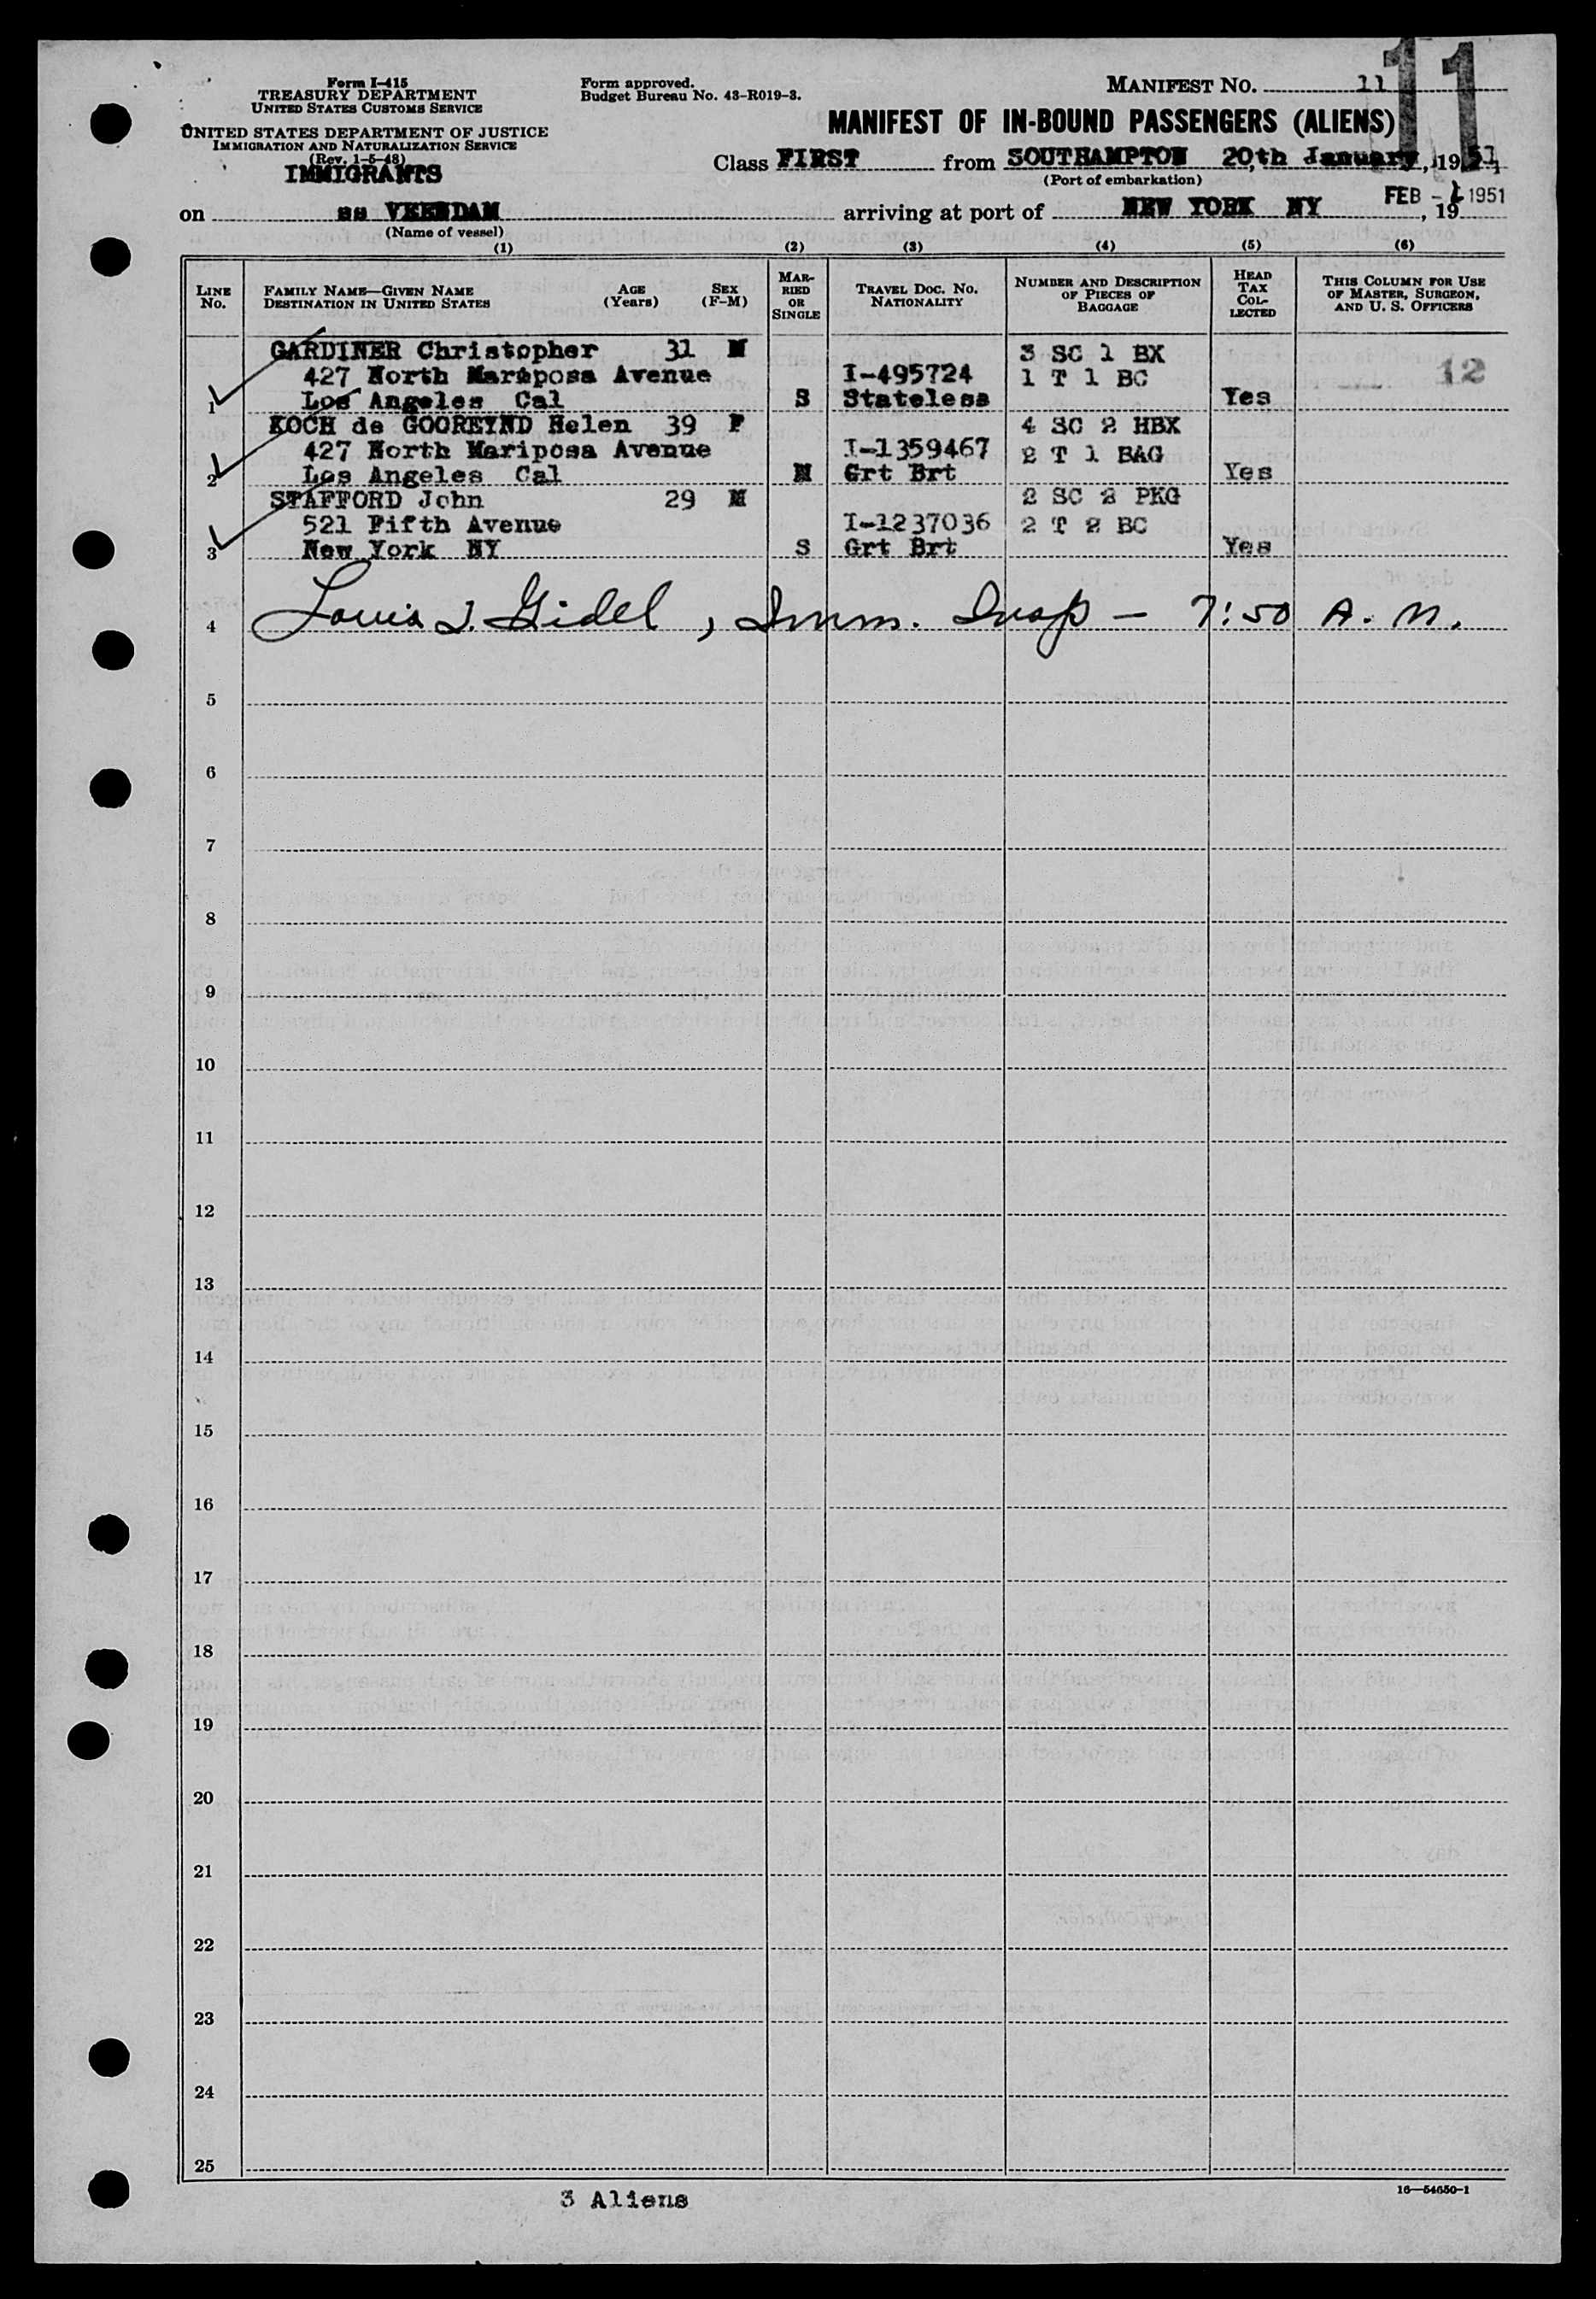 Form I-415
TREASURY DEPARTMENT
UNITED STATES CUSTOMS SERVICE
UNITED STATES DEPARTMENT OF JUSTICE
IMMIGRATION AND NATURALIZATION SERVICE
(Rev. 1-5-48)
IMMIGRANTS
Form approved.
Budget Bureau No. 43-R019-3.
MANIFEST NO. 11
11
MANIFEST OF IN-BOUND PASSENGERS (ALIENS)
Class FIRST from SOUTHAMPTON 20th January, 1951
(Port of embarkation)
on ss VEENDAM arriving at port of NEW YORK NY FEB - 1 1951, 19
(Name of vessel)
(1) (2) (3) (4) (5) (6)
LINE No. FAMILY NAME—GIVEN NAME DESTINATION IN UNITED STATES AGE (Years) SEX (F-M) MARRIED OR SINGLE TRAVEL DOC. NO. NATIONALITY NUMBER AND DESCRIPTION OF PIECES OF BAGGAGE HEAD TAX COLLECTED THIS COLUMN FOR USE OF MASTER, SURGEON, AND U. S. OFFICERS
GARDINER Christopher 31 M 3 SC 1 BX
427 North Mariposa Avenue I-495724 1 T 1 BC 12
1 Los Angeles Cal S Stateless Yes
KOCH de GOOREYND Helen 39 F 4 SC 2 HBX
427 North Mariposa Avenue I-1359467 2 T 1 BAG
2 Los Angeles Cal M Grt Brt Yes
STAFFORD John 29 M 2 SC 2 PKG
521 Fifth Avenue I-1237036 2 T 2 BC
3 New York NY S Grt Brt Yes
4 Louis J. Gidel, Imm. Insp — 7:50 A.M.
5
6
7
8
9
10
11
12
13
14
15
16
17
18
19
20
21
22
23
24
25
3 Aliens
16—54650-1